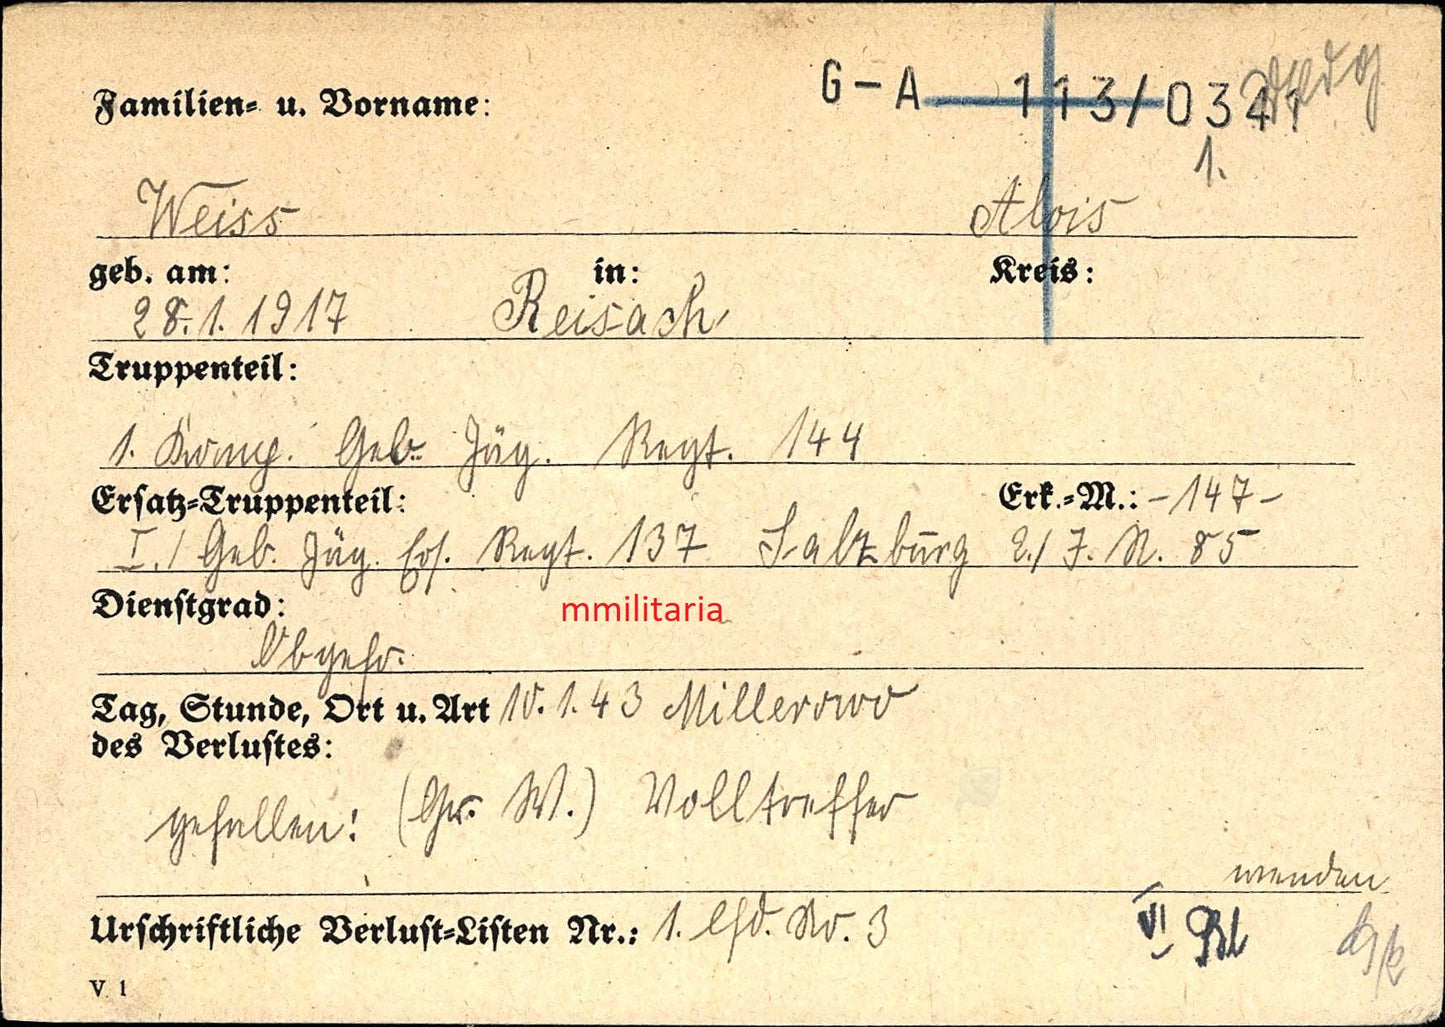 G-A 113/0341
Familien- u. Vorname:
1.
Weiss Alois
geb. am: in: Kreis:
28.1.1917 Reisach
Truppenteil:
1. Komp. Geb. Jäg. Regt. 144
Ersatz-Truppenteil: Erk.-M.: -147-
I./ Geb. Jäg. Ers. Regt. 137 Salzburg 2./J.R. 85
Dienstgrad:
mmilitaria
Obgefr.
Tag, Stunde, Ort u. Art 10.1.43 Millerowo
des Verlustes:
gefallen: (Gr. W.) Volltreffer
wenden
Urschriftliche Verlust-Listen Nr.: 1. lfd. No. 3
VI
V 1